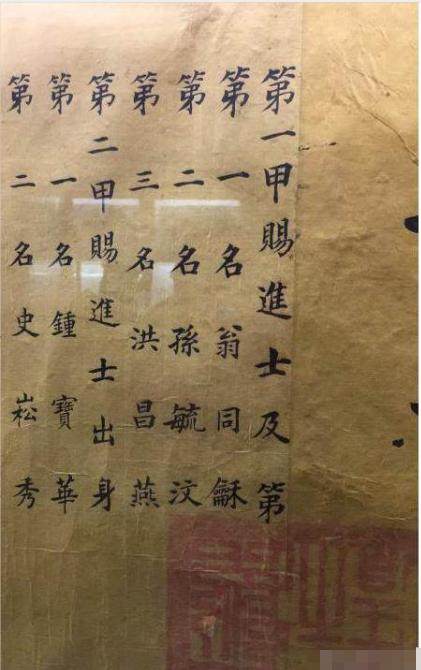 第一甲賜進士及第
第一名翁同龢
第二名孫毓汶
第三名洪昌燕
第二甲賜進士出身
第一名鍾寶華
第二名史崧秀